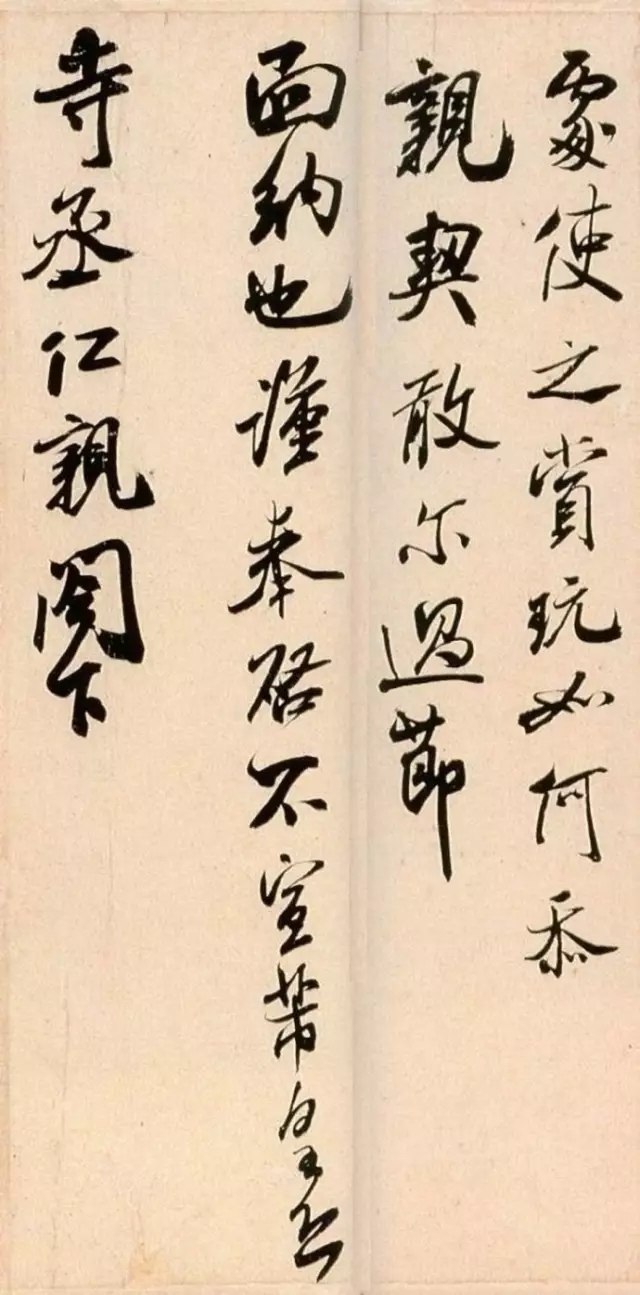 處使之賞玩如何忝
親契敢尔過節
面納也謹奉啓不宣芾皇恐
寺丞仁親閤下